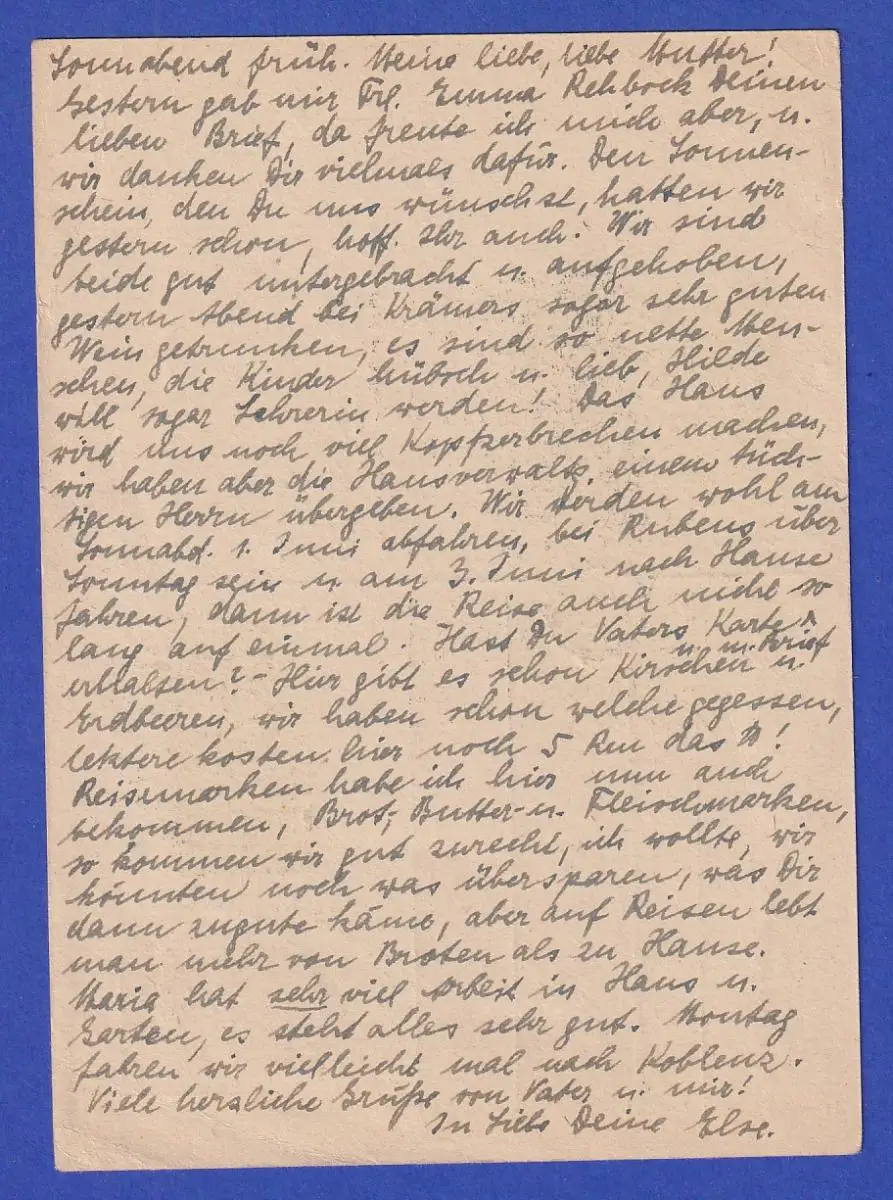 Sonnabend früh. Meine liebe, liebe Mutter!
Gestern gab mir Frl. Emma Rehbock Deinen
lieben Brief, da freute ich mich aber, u.
wir danken Dir vielmals dafür. Den Sonnen-
schein, den Du uns wünschst, hatten wir
gestern schon, hoff. Ihr auch. Wir sind
beide gut untergebracht u. aufgehoben,
gestern Abend bei Krämers sogar sehr guten
Wein getrunken, es sind so nette Men-
schen, die Kinder hübsch u. lieb, Hilde
will sogar Lehrerin werden! Das Haus
wird uns noch viel Kopfzerbrechen machen,
wir haben aber die Hausverwaltg. einem tüch-
tigen Herrn übergeben. Wir werden wohl am
Sonnabd. 1. Juni abfahren, bei Rubens über
Sonntag sein u. am 3. Juni nach Hause
fahren, dann ist die Reise auch nicht so
lang auf einmal. Hast Du Vaters Karte
u. m. Brief
erhalten? - Hier gibt es schon Kirschen u.
Erdbeeren, wir haben schon welche gegessen,
letztere kosten hier noch 5 Rm das ℔!
Reisemarken habe ich hier nun auch
bekommen, Brot-, Butter- u. Fleischmarken,
so kommen wir gut zurecht, ich wollte, wir
könnten noch was übersparen, was Dir
dann zugute käme, aber auf Reisen lebt
man mehr von Broten als zu Hause.
Maria hat sehr viel Arbeit in Haus u.
Garten, es steht alles sehr gut. Montag
fahren wir vielleicht mal nach Koblenz.
Viele herzliche Grüße von Vater u. mir!
In Liebe Deine Else.